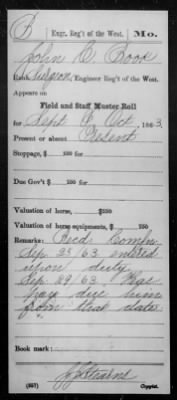 B | Engr. Reg't of the West. | Mo.
John B. Book
Rank Surgeon, Engineer Reg't of the West.
Appears on
Field and Staff Muster Roll
for Sept & Oct, 1863.
Present or absent Present
Stoppage, $ 100 for
Due Gov't $ 100 for
Valuation of horse, $ 100
Valuation of horse equipments, $ 100
Remarks: Recd Comn
Sep 25/63 entered
upon duty
Sep 29/63. Has
pay due him
from that date.
Book mark:
(857) J J Stearns Copyist.